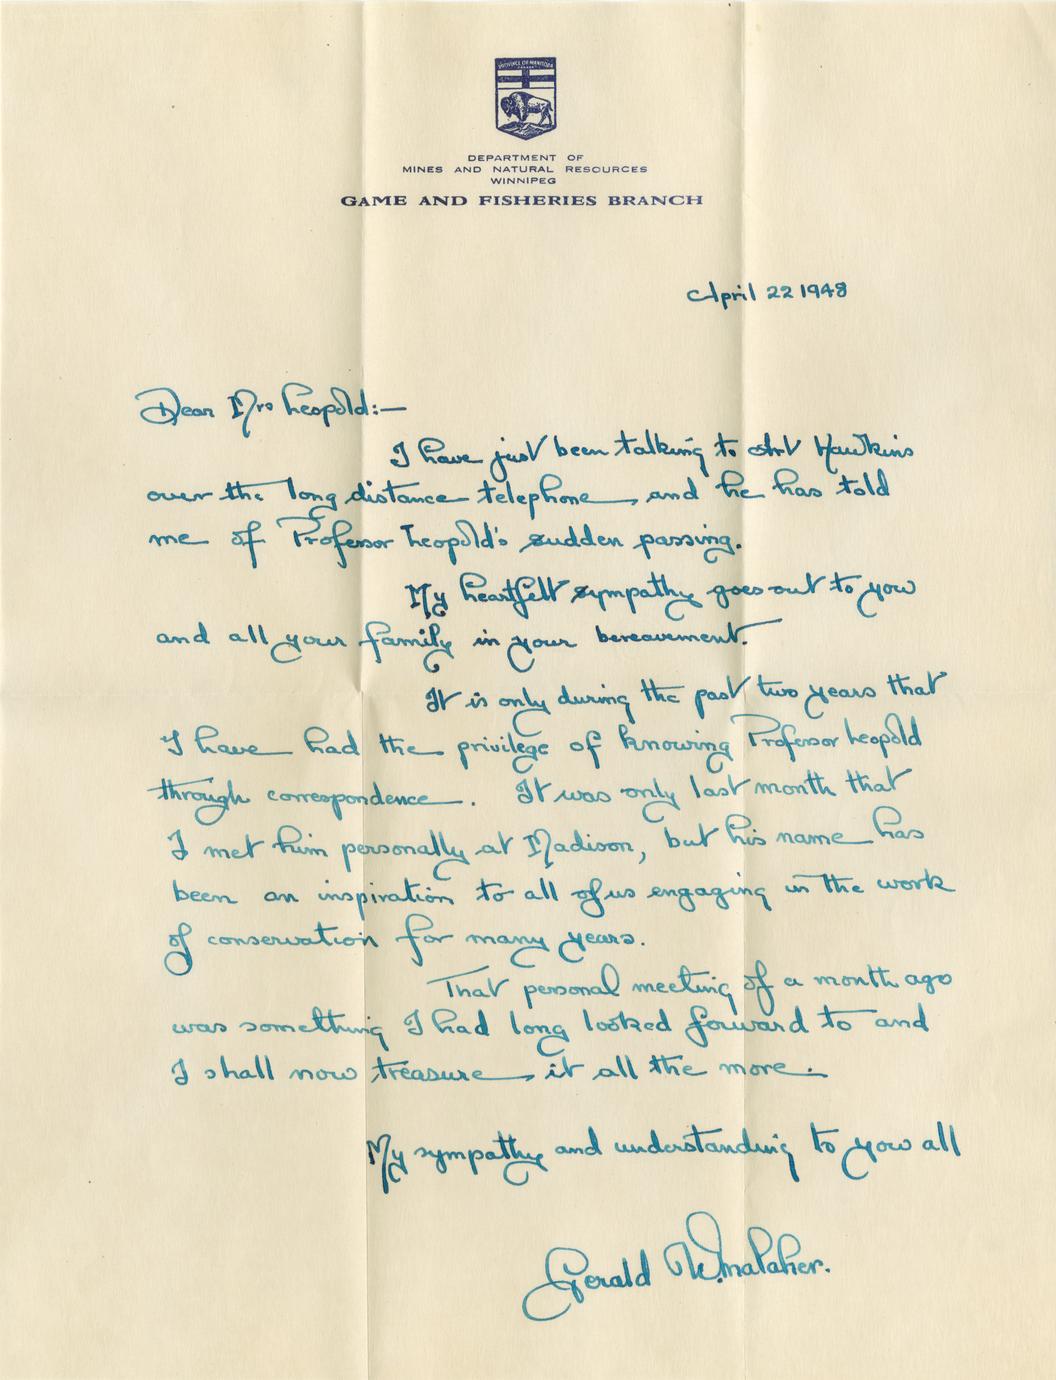 PROVINCE OF MANITOBA
DEPARTMENT OF
MINES AND NATURAL RESOURCES
WINNIPEG
GAME AND FISHERIES BRANCH
April 22 1948
Dear Mrs Leopold:—
I have just been talking to Art Hawkins
over the long distance telephone, and he has told
me of Professor Leopold's sudden passing.
My heartfelt sympathy goes out to you
and all your family in your bereavement.
It is only during the past two years that
I have had the privilege of knowing Professor Leopold
through correspondence. It was only last month that
I met him personally at Madison, but his name has
been an inspiration to all of us engaging in the work
of conservation for many years.
That personal meeting of a month ago
was something I had long looked forward to and
I shall now treasure it all the more.
My sympathy and understanding to you all
Gerald W. Malaher.